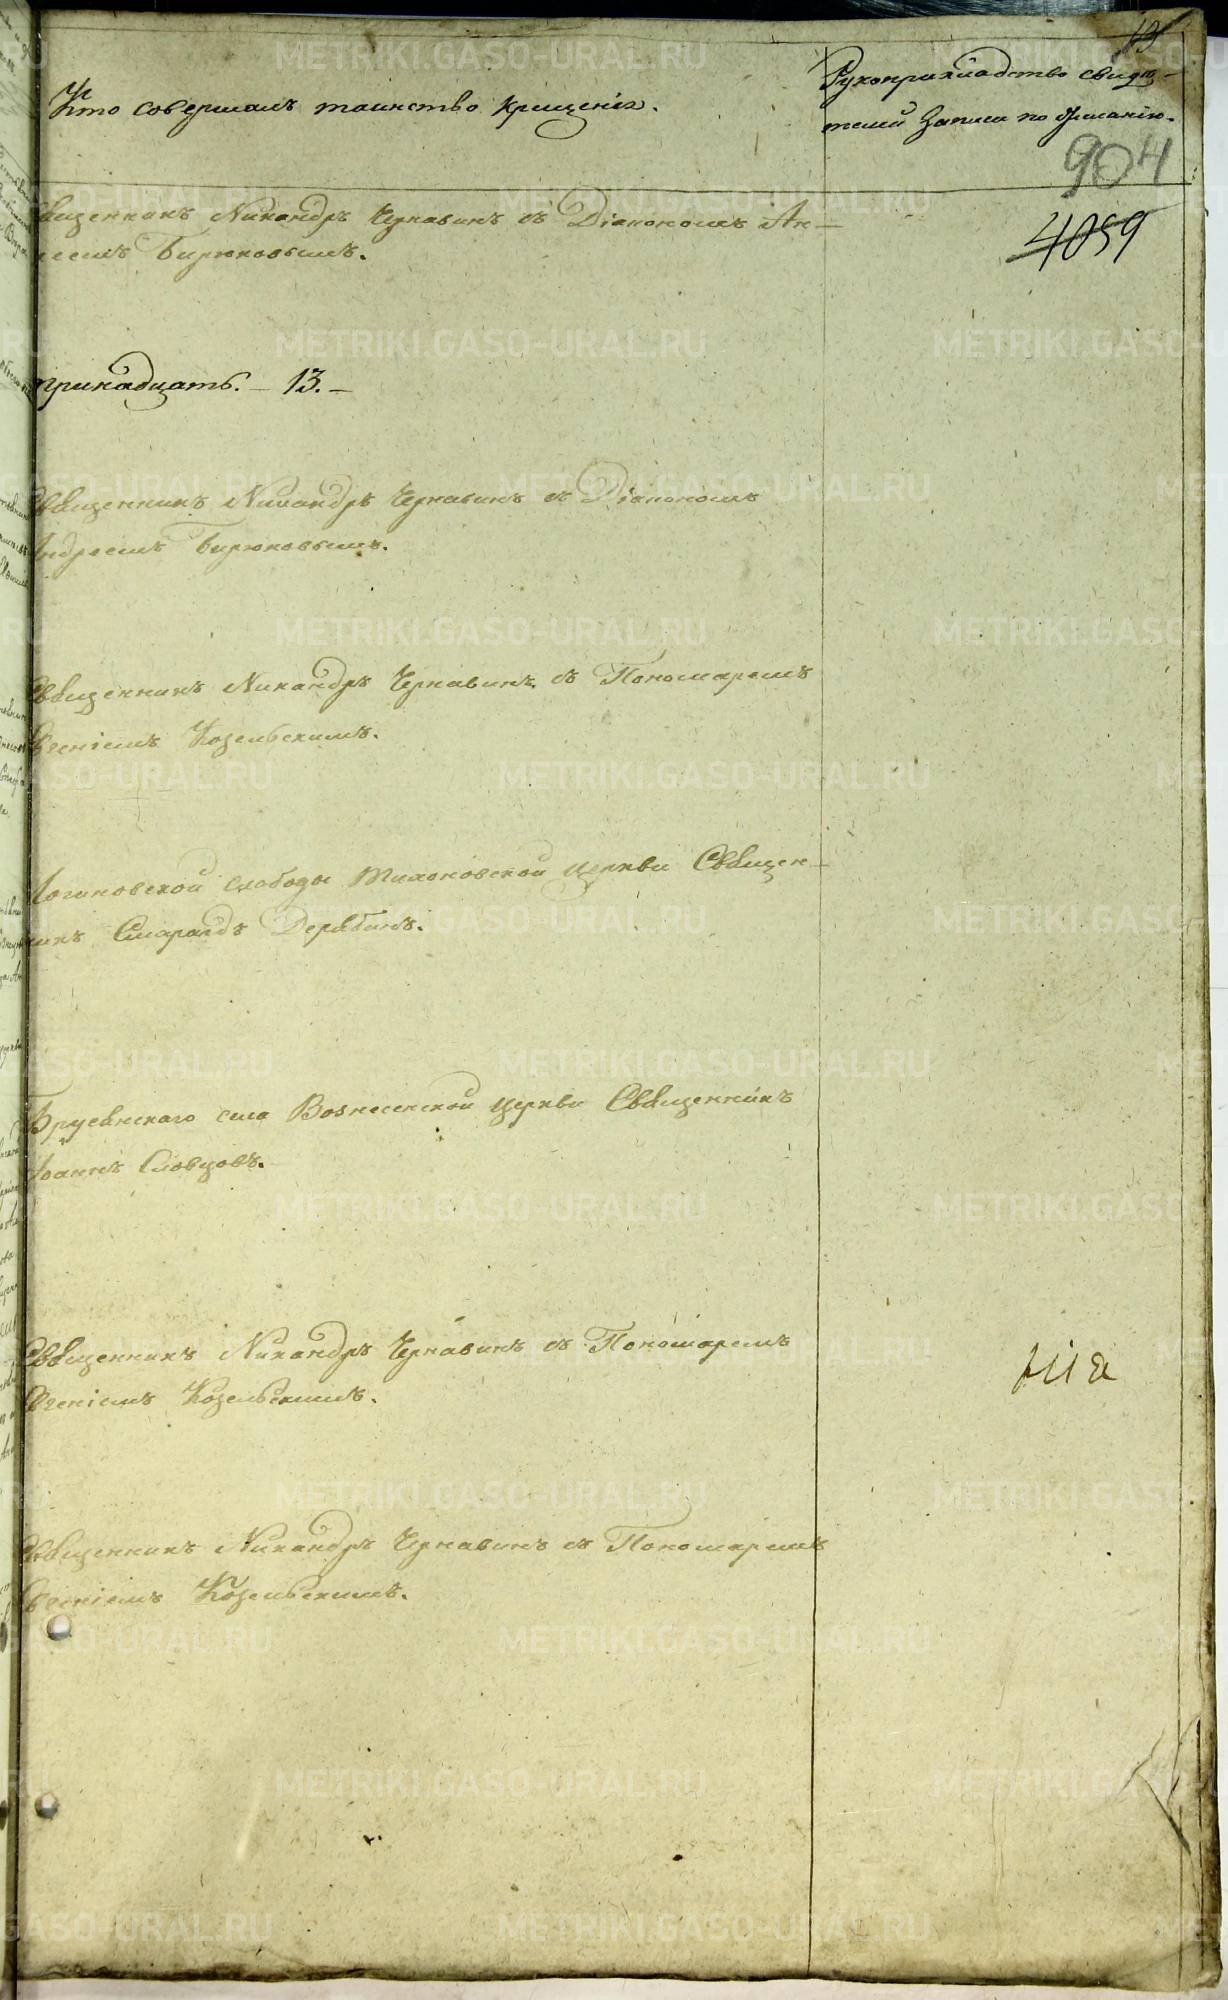 Кто совершалъ таинство крещенія.
Рукоприкладство свидѣ-
телей записи по желанію.
904
4059
Священникъ Никандръ Чернавинъ съ Діакономъ Ан-
дреемъ Бирюковымъ.
тринадцать. – 13. –
Священникъ Никандръ Чернавинъ съ Діакономъ
Андреемъ Бирюковымъ.
Священникъ Никандръ Чернавинъ съ Пономаремъ
Евгеніемъ Козельскимъ.
Логиновской слободы Тихоновской церкви Священ-
никъ Смарагдъ Дерябинъ.
Брусянскаго села Вознесенской церкви Священникъ
Іоаннъ Словцовъ.
Священникъ Никандръ Чернавинъ съ Пономаремъ
Евгеніемъ Козельскимъ.
Священникъ Никандръ Чернавинъ съ Пономаремъ
Евгеніемъ Козельскимъ.
METRIKI.GASO-URAL.RU